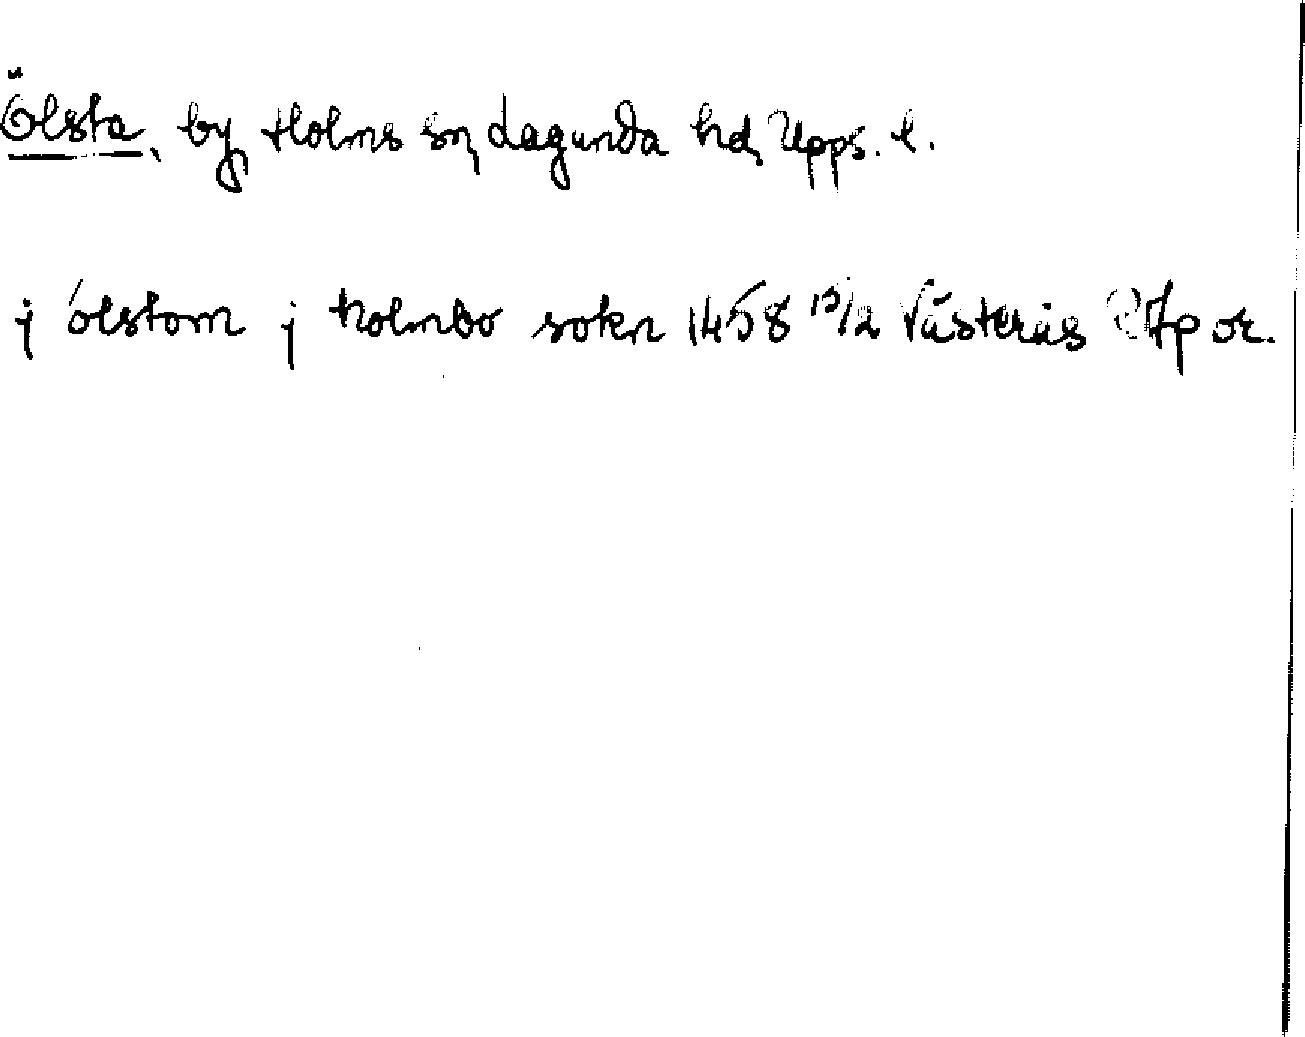 Ölsta, by, Holms sn, Lagunda hd, Upps. l.
j ólstom j holmbo sokn 1458 13/2 Västerås RAp or.